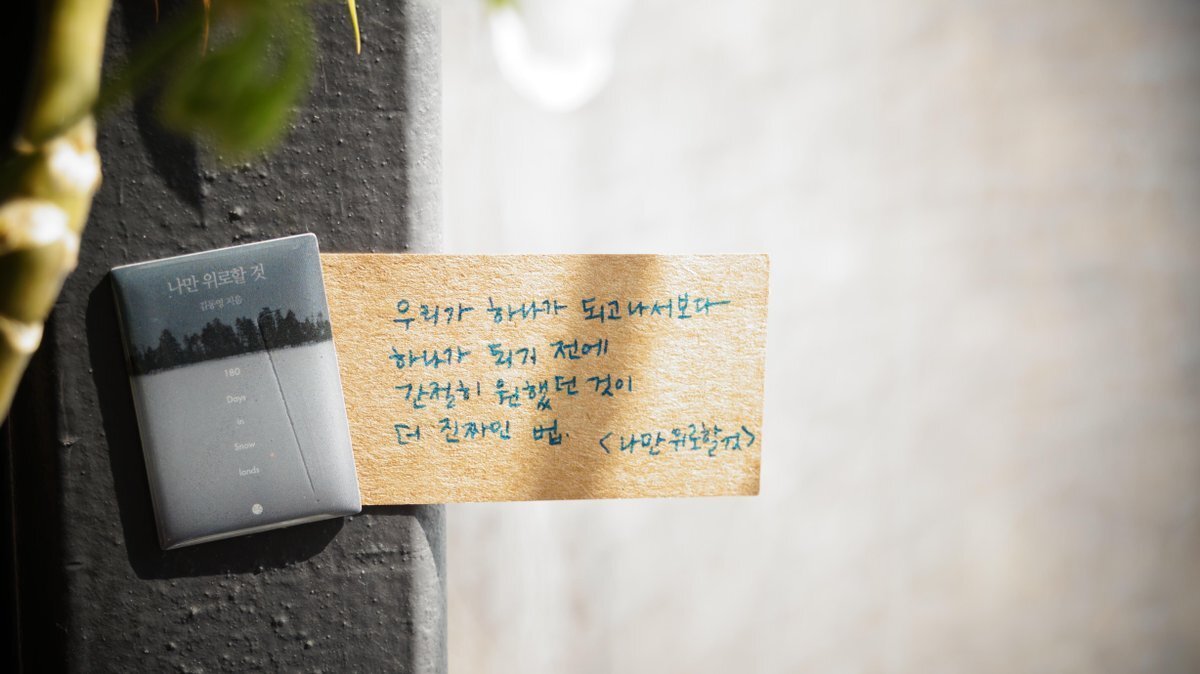 나만 위로할 것
김동영 지음
180
Days
in
Snow
lands
우리가 하나가 되고나서보다
하나가 되기 전에
간절히 원했던 것이
더 진짜인 법.
<나만 위로할 것>